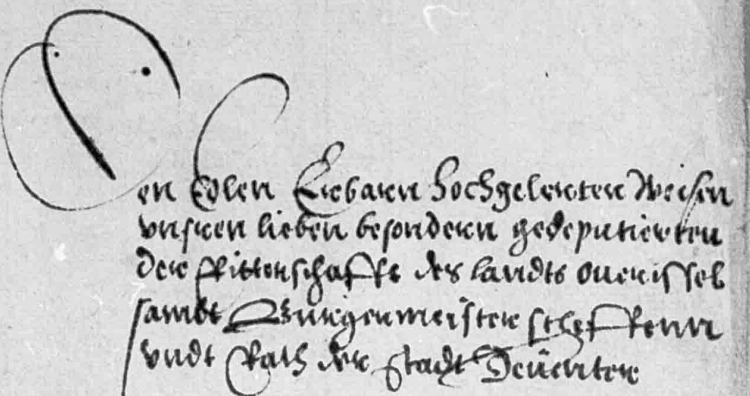 Den Edlen Erbarn Hochgelerten Weisen
vnseren lieben besonderen gedeputierten
der Ritterschafft des landts ouerissel
sambt Burgermeister scheffenn
vndt Rath der Stadt Deuenter